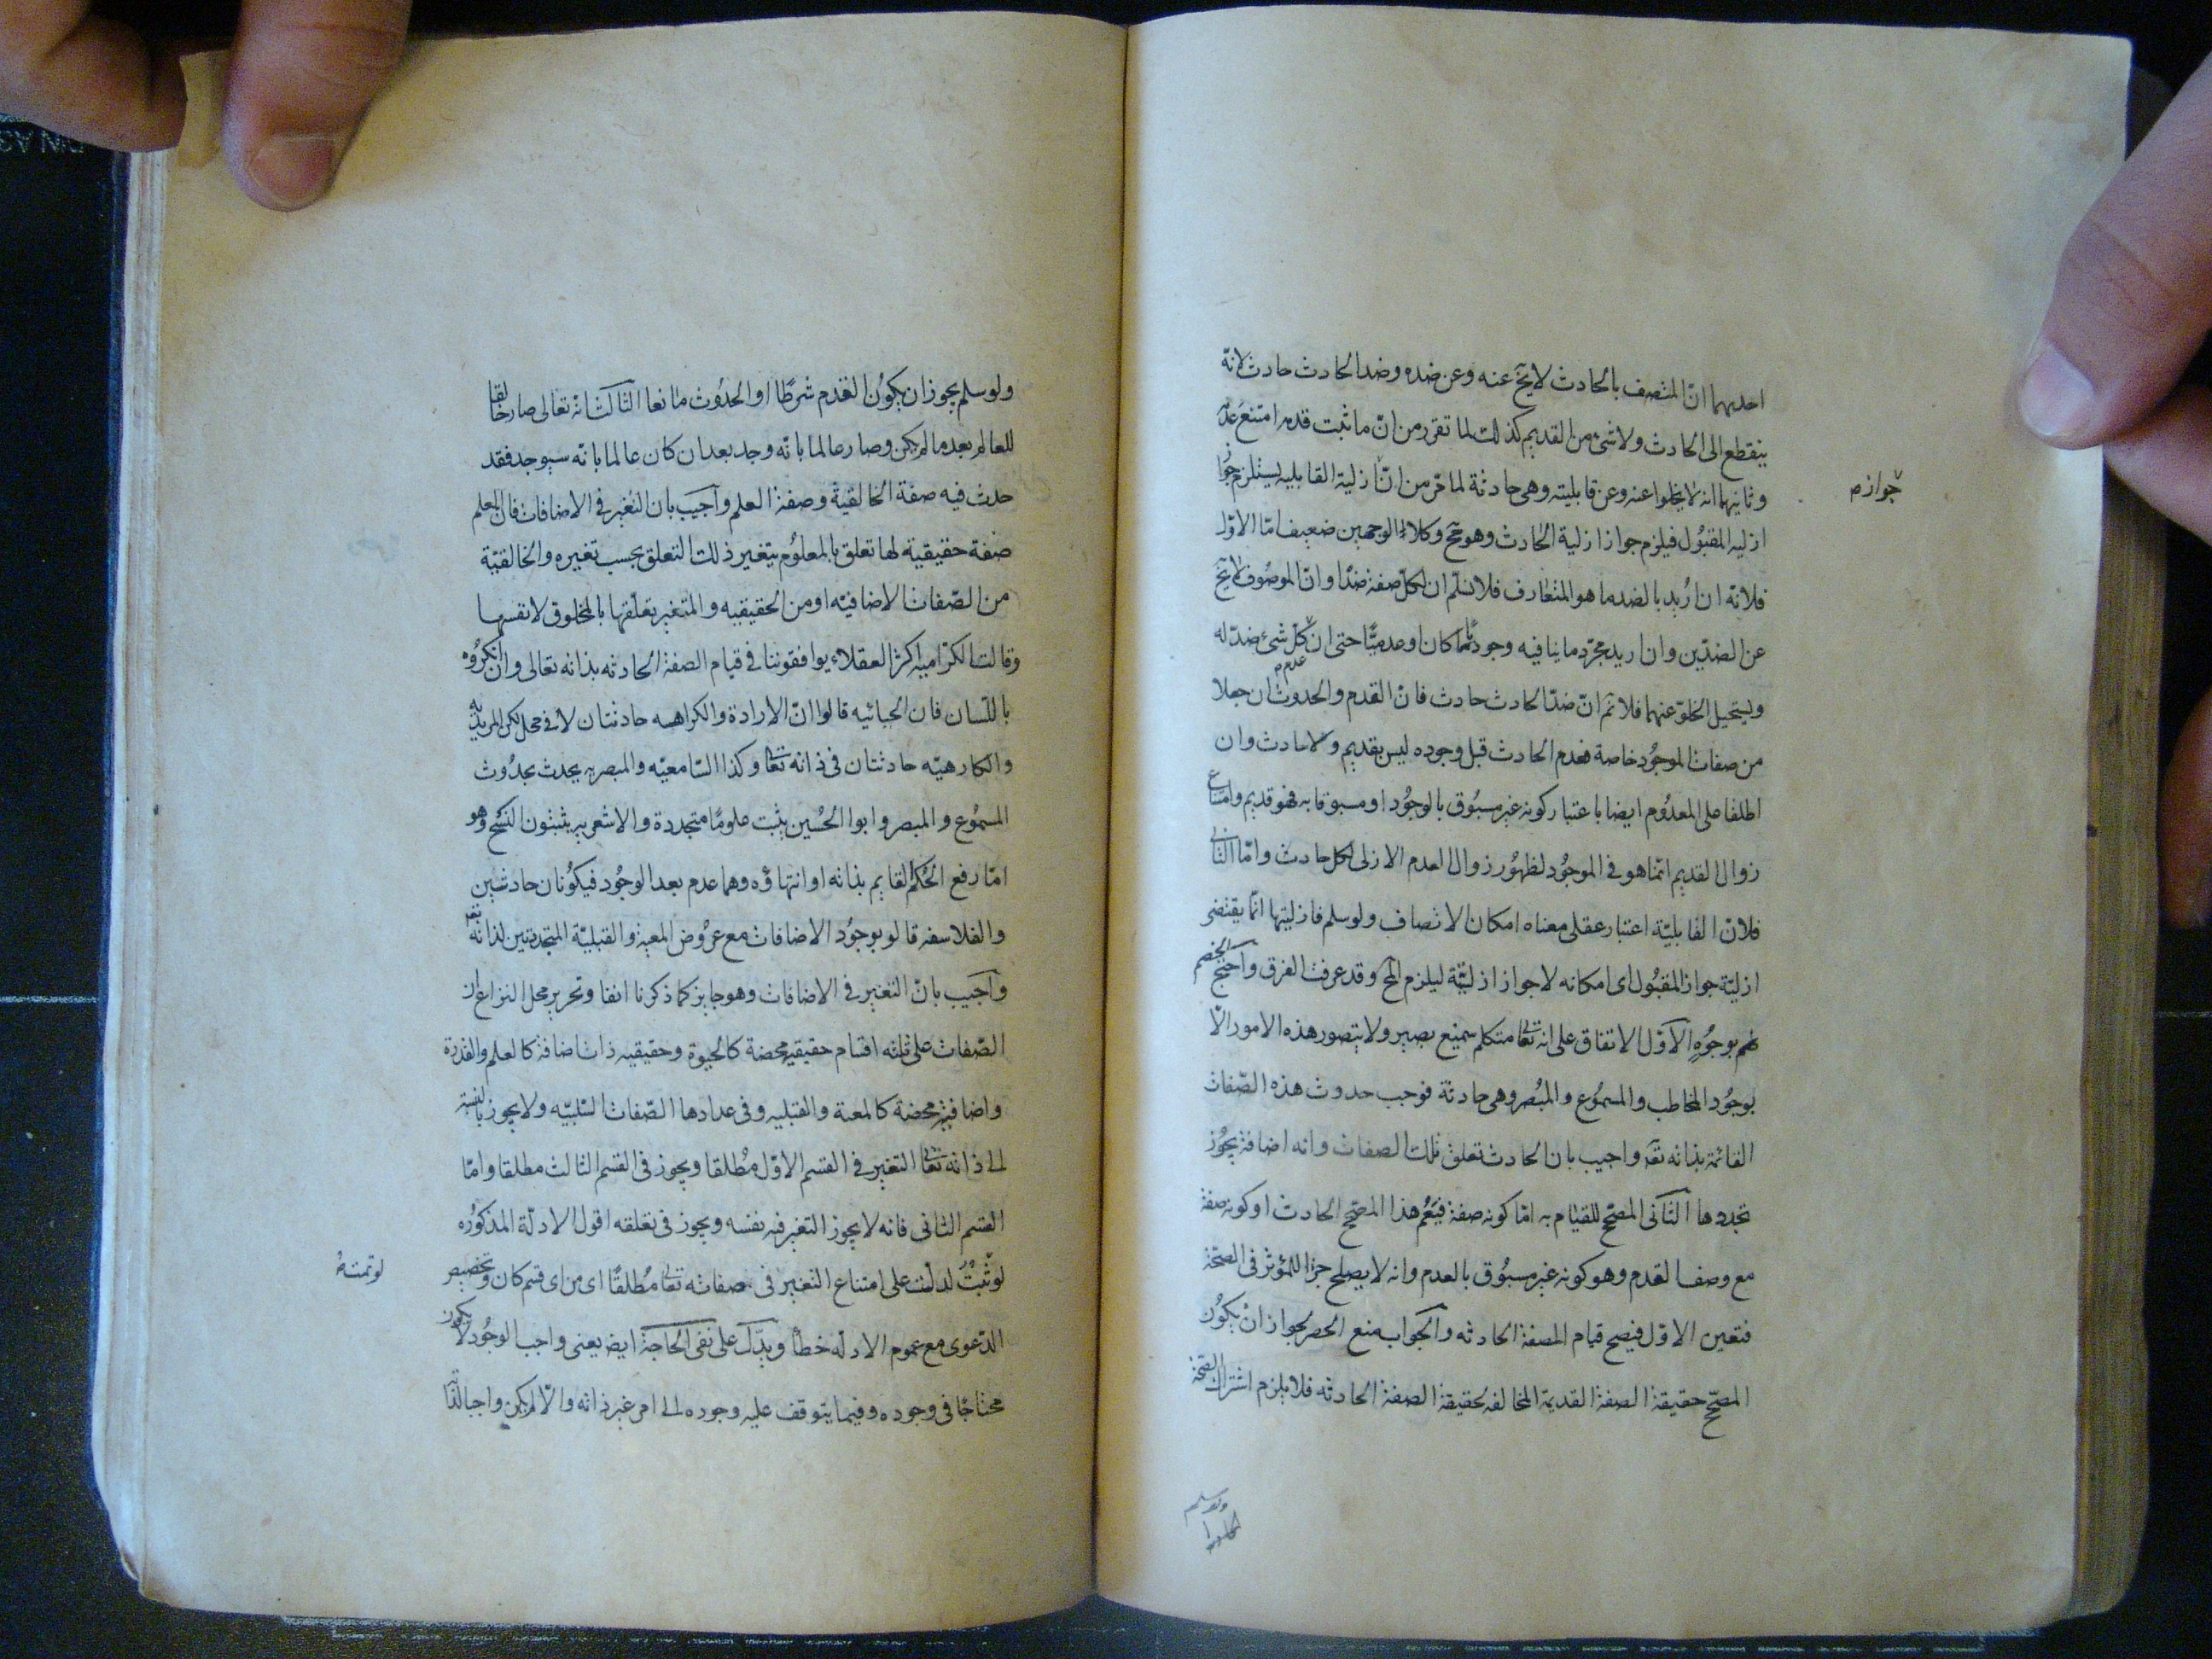 احديهما انّ المتصف بالحادث لا يخ عنه وعن ضده وضد الحادث حادث لانّه
ينقطع الى الحادث ولا شئ من القديم كذلك لما تقرر من انّ ما ثبت قدمه امتنع عدمه
وثانيهما انه لا يخلوا عنه وعن قابليته وهى حادثة لما مرّ من انّ ازلية القابليه يستلزم جواز
جوازم
ازليه المقبُول فيلزم جواز ازلية الحادث وهو مح وكلاء الوجهين ضعيف امّا الاوّل
فلانّه ان اُريد بالضد ما هو المتعارف فلا نسلّم ان لكلّ صفة ضدًا وانّ الموصُوف لا يخ
عن الضدّين وان اريد مجرّد ما ينافيه وجوديًّا كان او عدميًّا حتى انّ كلّ شئ ضدّ له
عدم م
ويستحيل الخلوّ عنهما فلا نم انّ ضدّ الحادث حادث فانّ القدم والحدوث ان جعلا
من صفات الموجُود خاصة فعدم الحادث قبل وجوده ليس بقديم ولا حادث وان
اطلقا على المعدُوم ايضا باعتبار كونه غير مسبُوق بالوجُود او مسبوقا به فهو قديم وامتناع
زوال القديم انّما هو فى الموجُود لظهُور زوال العدم الازلى لكل حادث وامّا الثانى
فلانّ القابليّة اعتبار عقلى معناه امكان الاتصاف ولو سلم فازليتها انّما يقتضى
ازليّة جواز المقبُول اى امكانه لا جواز ازليّته ليلزم المح وقد عرفت الفرق واحتج الخصم
لهم بوجُوه الاوّل الاتفاق على انه تعالى متكلم سميع بصير ولا يتصور هذه الامور الّا
بوجُود المخاطب والمسمُوع والمُبصر وهى حادثة فوجب حدوث هذه الصّفات
القائمة بذاته تعه واجيب بان الحادث تعلق تلك الصفات وانه اضافة يجُوز
تجددها الثانى المصحّح للقيام به امّا كونه صفة فيعُم هذا المصحّح الحادث او كونه صفة
مع وصف القدم وهو كونه غير مسبُوق بالعدم وانه لا يصلح جزا للمؤثر فى الصحّة
فتعين الاوّل فيصح قيام الصفة الحادثه والجواب منع الحصر لجواز انْ يكُون
المصحّح حقيقة الصفة القديمة المخالفه لحقيقة الصفة الحادثه فلا يلزم اشتراك الصحّة
ولو سلم
ولو سلم يجوز ان يكُون القدم شرطًا او الحدُوث مانعا الثالث انّه تعالى صار خالقا
للعالم بعد ما لم يكن وصار عالما بانّه وجد بعد ان كان عالما بانّه سيوجد فقد
حدث فيه صفة الخالقية وصفة العلم واُجيب بان التغير فى الاضافات فان العلم
صفة حقيقية لها تعلق بالمعلوُم يتغير ذلك التعلق بحسب تغيره والخالقيّة
من الصّفات الاضافيّه او من الحقيقيه والمتغير تعلّقها بالمخلوق لا نفسها
وقالت الكرّاميه اكثر العقلاء يوافقوننا فى قيام الصفة الحادثه بذاته تعالى وان انكرُوه
باللّسان فان الجبائيه قالوا انّ الارادة والكراهه حادثتان لا فى محل لكن المريديه
والكارهيّه حادثتان فى ذاته تعالى وكذا السّامعيّه والمبصريه يحدث بحدُوث
المسمُوع والمبصر وابوا الحُسين يثبت علومًا متجددة والاشعريه يثبتون النسخ وهو
امّا رفع الحُكم القايم بذاته او انتهاؤه وهما عدم بعد الوجُود فيكوُنان حادثين
والفلاسفه قالو بوجُود الاضافات مع عرُوض المعيّه والقبليّة المتجددتين لذاته تعه
واُجيب بانّ التغير فى الاضافات وهو جايز كما ذكرنا انفا وتحرير محل النزاع ان
الصّفات على ثلثه اقسام حقيقيه محضة كالحيوة وحقيقيه ذات اضافة كالعلم والقدرة
واضافيّة محضة كالمعية والقبليه وفى عدادها الصّفات السّلبيّه ولا يجوز بالنسبة
الى ذاته تعالى التغير فى القسم الاوّل مُطلقا ويجوز فى القسم الثالث مطلقا وامّا
القسم الثانى فانه لا يجوز التغير فيه نفسه ويجوز فى تعلقه اقول الادلّة المذكوُره
لو ثبتُ لدلّت على امتناع التغير فى صفاته تعالى مُطلقًا اى من اى قسم كان وتخصيص
لو تمت
الدّعوى مع عموم الادلّه خطأ ويدّل على نفى الحاجة ايض يعنى واجب الوجُود لا يكون
محتاجًا فى وجوده وفيما يتوقف عليه وجوده الى امر غير ذاته والّا لم يكن واجبا لذاته